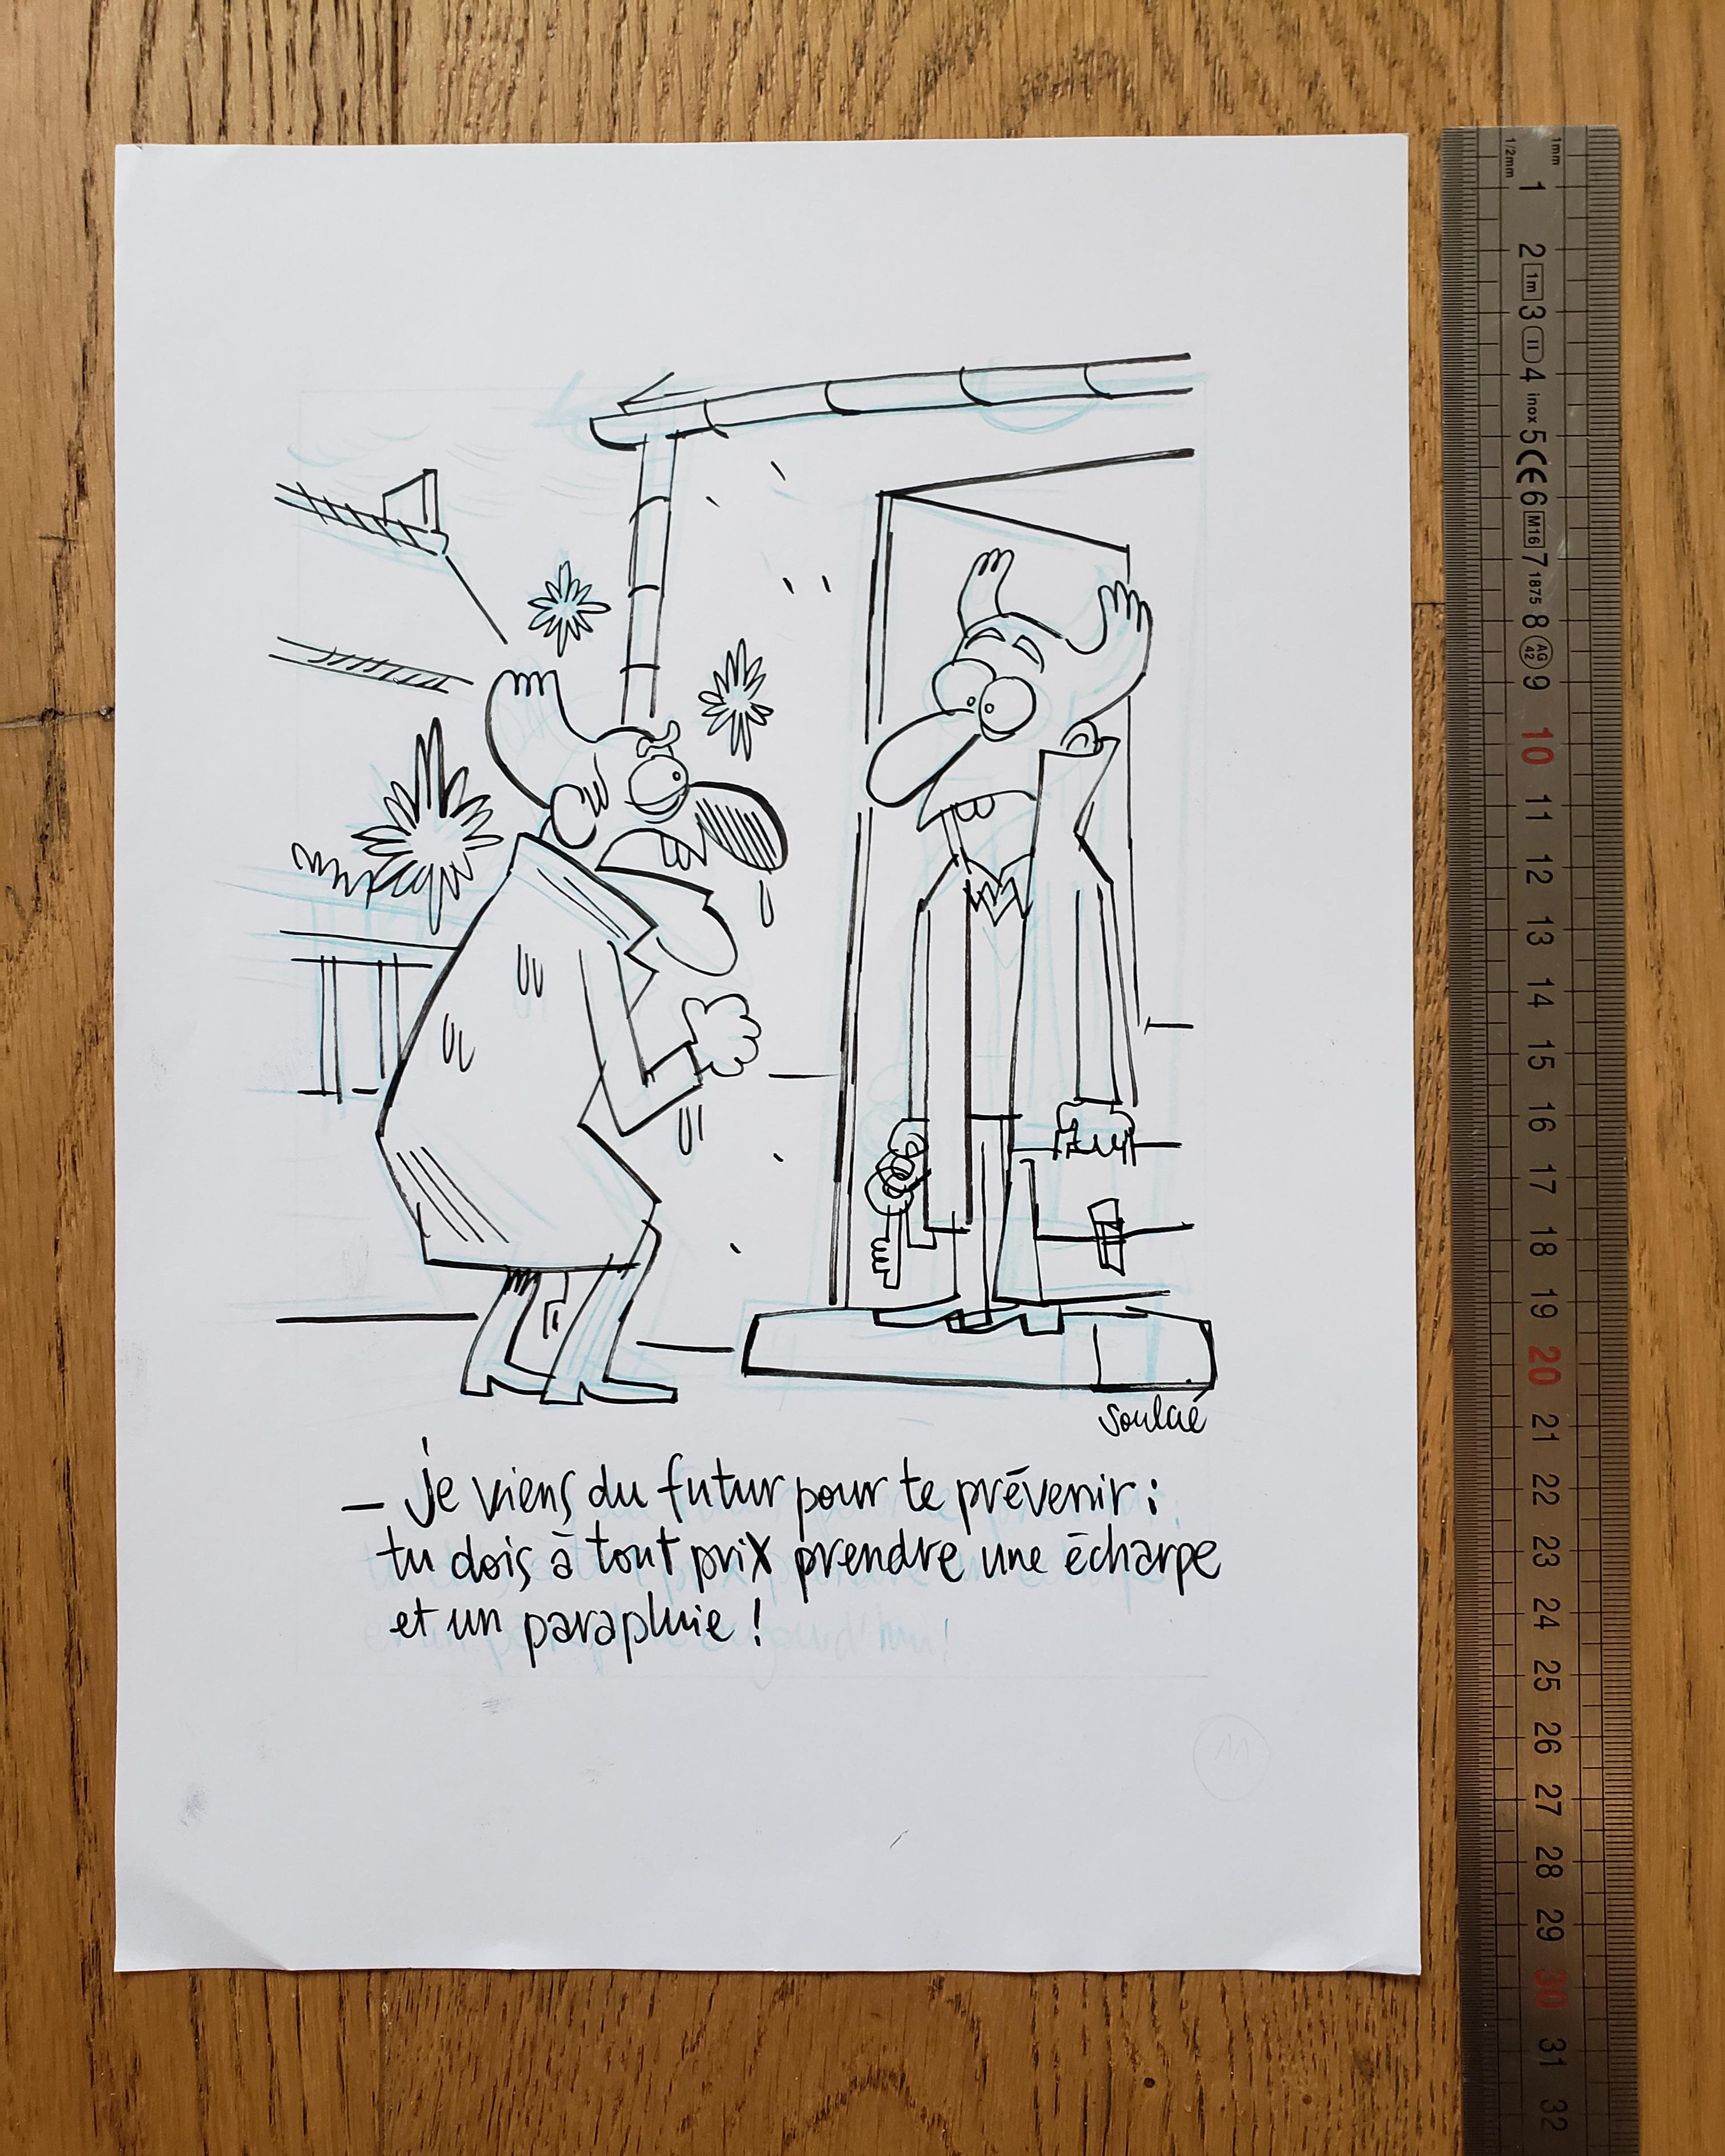 Soulcié
— je viens du futur pour te prévenir :
tu dois à tout prix prendre une écharpe
et un parapluie !
11
1/2mm 1mm
1
2
1m
3
II
4
inox
5
CE
6
M16
7
1875
8
AG 42
9
10
11
12
13
14
15
16
17
18
19
20
21
22
23
24
25
26
27
28
29
30
31
32